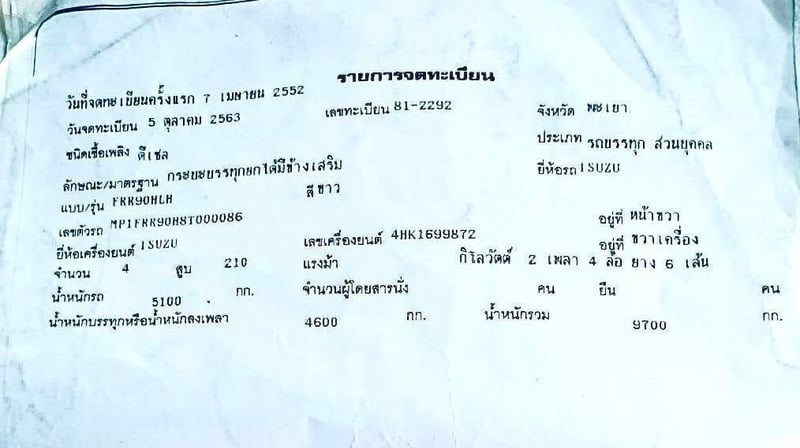 รายการจดทะเบียน
วันที่จดทะเบียนครั้งแรก 7 เมษายน 2552
วันจดทะเบียน 5 ตุลาคม 2563 เลขทะเบียน 81-2292 จังหวัด พะเยา
ชนิดเชื้อเพลิง ดีเซล ประเภท รถบรรทุก ส่วนบุคคล
ลักษณะ/มาตรฐาน กระบะบรรทุกยกได้มีข้างเสริม ยี่ห้อรถ ISUZU
แบบ/รุ่น FRR90HLH สี ขาว
เลขตัวรถ MP1FRR90H8T000086 อยู่ที่ หน้าขวา
ยี่ห้อเครื่องยนต์ ISUZU เลขเครื่องยนต์ 4HK1699872 อยู่ที่ ขวาเครื่อง
จำนวน 4 สูบ 210 แรงม้า กิโลวัตต์ 2 เพลา 4 ล้อ ยาง 6 เส้น
น้ำหนักรถ 5100 กก. จำนวนผู้โดยสารนั่ง คน ยืน คน
น้ำหนักบรรทุกหรือน้ำหนักลงเพลา 4600 กก. น้ำหนักรวม 9700 กก.